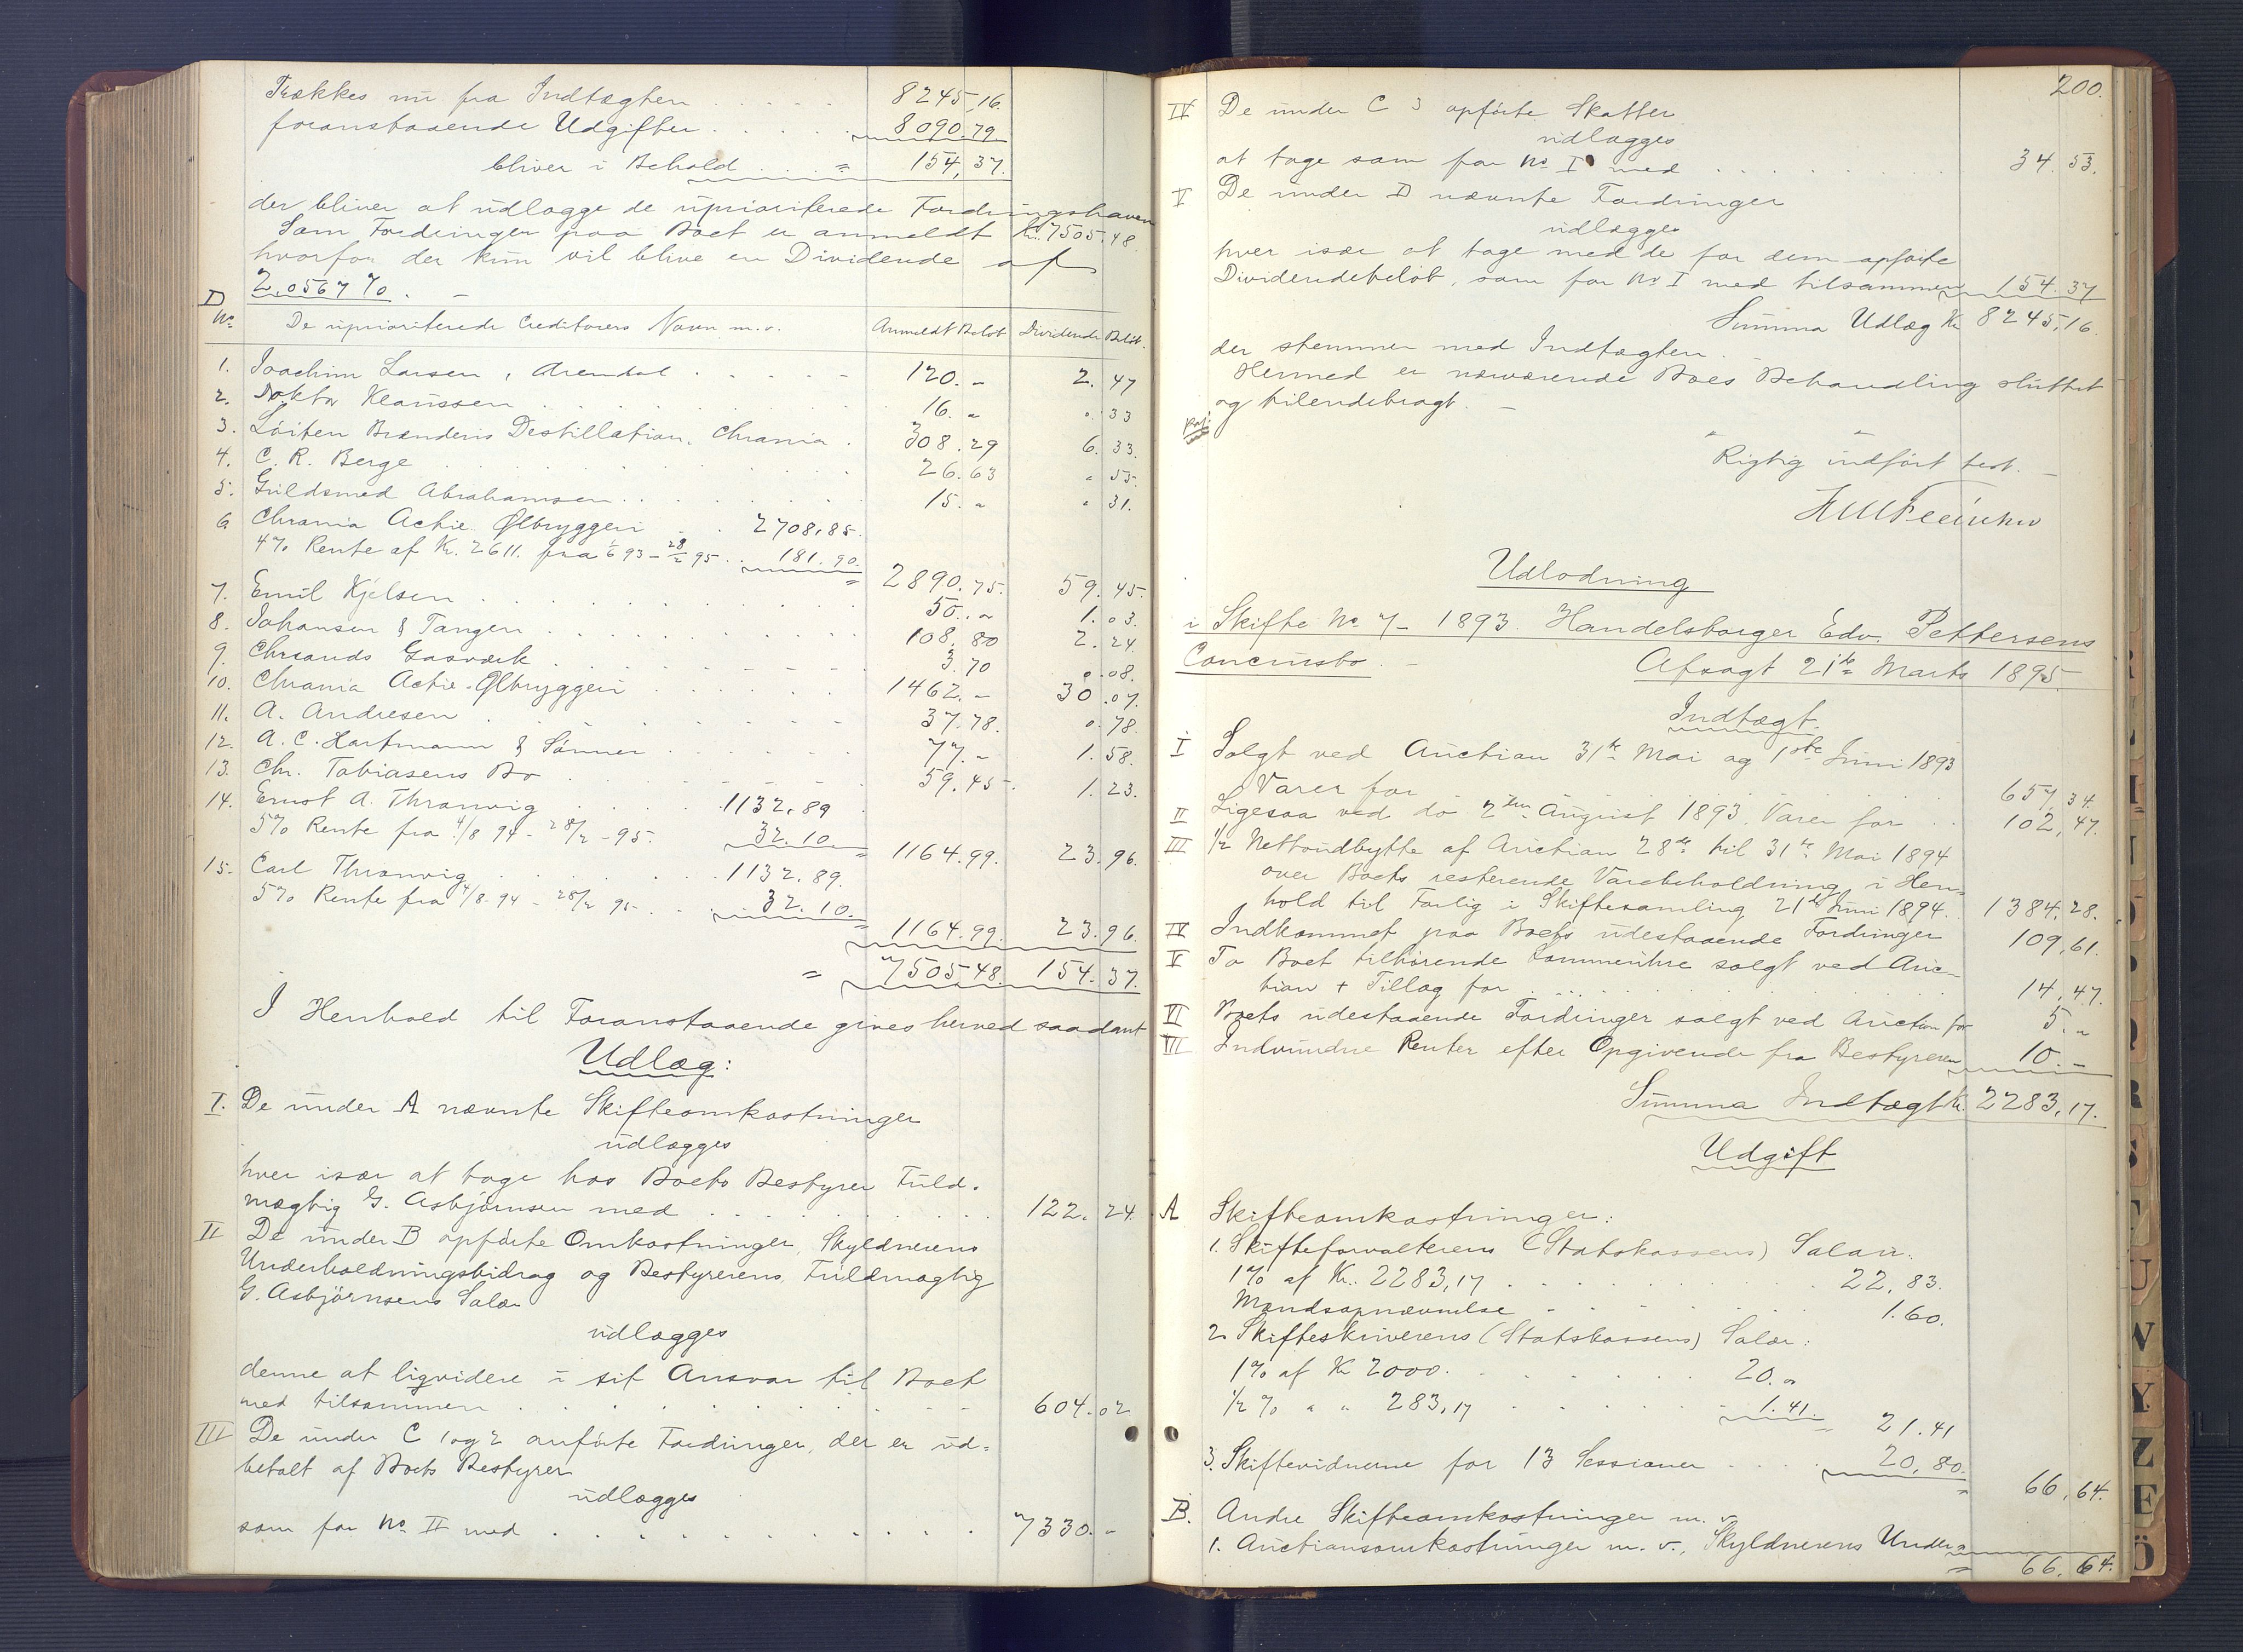 Trækkes nu fra Indtægten . . . . . 8245,16.
foranstaaende Udgifter . . . . . 8090.79.
bliver i Behold . . . = 154,37.
der bliver at udlægge de uprioriterede Fordringshavere
Som Fordringer paa Boet er anmeldt Kr. 7505.48.
hvorfor der kun vil blive en Dividende af
2,0567 %. –
D
No. De uprioriterede Creditorers Navn m.v. Anmeldt Beløb Dividende Beløb.
1. Joachim Larsen, Arendal . . . . . 120.- 2.47
2. Doktor Klaussen . . . . . 16.- 0.33
3. Löiten Brænderis Destillation, Chrania . 308.29 6.33.
4. C. R. Berge . . . . . 26.63 " 55.
5. Guldsmed Abrahamsen . . . . . 15.- " 31.
6. Chrania Actie Ølbryggeri . . 2708,85.
4% Rente af Kr. 2611. fra 1/6 93 – 28/2 95 . . 181.90. = 2890.75. 59.45.
7. Emil Kjelsen . . . . . 50.- 1.03.
8. Johansen & Tangen . . . . . 108.80 2.24.
9. Chrsands Gasværk . . . . . 3.70 0.08.
10. Chrania Actie-Ølbryggeri . . . . . 1462.- 30.07.
11. A. Andresen . . . . . 37.78. 0.78.
12. A. C. Hartmann & Sønner . . . . . 77.- 1.58.
13. Chr. Tobiasens Bo . . . . . 59.45. 1.23.
14. Ernst A. Thranvig . . . . 1132,89
5% Rente fra 4/8 94 – 28/2 – 95. 32.10. = 1164.99. 23.96.
15. Carl Thranvig . . . . 1132.89.
5% Rente fra 4/8 94 – 28/2 95 . . . 32.10.
1164.99. 23.96.
= 7505.48. 154.37.
I Henhold til Foranstaaende gives herved saadant
Udlæg:
I. De under A nævnte Skifteomkostninger
udlægges
hver især at tage hos Boets Bestyrer Fuld-
mægtig G. Asbjørnsen med . . . . . 122.24.
II De under B opførte Omkostninger, Skyldnerens
Underholdningsbidrag og Bestyrerens, Fuldmægtig
G. Asbjørnsens Salær
udlægges
denne at liqvidere i sit Ansvar til Boet
med tilsammen . . . . . 604.02
III De under C 1 og 2 anførte Fordringer, der er ud-
betalt af Boets Bestyrer
udlægges
som for No. II med . . . . . 7330.-
200.
IV De under C 3 opførte Skatter
udlægges
at tage som for No I med . . . . . 34.53.
V De under D nævnte Fordringer
udlægges
hver især at tage med de for dem opførte
Dividendebeløb, som for No I med tilsammen 154.37
Summa Udlæg Kr. 8245,16.
der stemmer med Indtægten.
Hermed er nærværende Boes Behandling sluttet
og tilendebragt. –
Rigtig indført test. –
Udlodning
i Skifte No. 7 – 1893. Handelsborger Edv. Pettersens
Concursbo. – Afsagt 21de Marts 1895.
Indtægt.
I Solgt ved Auction 31te Mai og 1ste Juni 1893
Varer for . . . . . 657,34.
II Ligesaa ved do 2den August 1893. Varer for . . 102,47.
III 1/2 Nettoudbytte af Auction 28de til 31te Mai 1894
over Boets resterende Varebeholdning i Hen-
hold til Forlig i Skiftesamling 21de Juni 1894. 1384,28.
IV Indkommet paa Boets udestaaende Fordringer 109,61.
V To Boet tilhørende Kommenhve solgt ved Auc-
tion + Tillæg for . . . . . 14,47.
VI Boets udestaaende Fordringer solgt ved Auction for 5.-
VII Indvundne Renter efter Opgivende fra Bestyreren 10.-
Summa Indtægt Kr. 2283,17.
Udgift
A Skifteomkostninger:
1. Skifteforvalterens (Statskassens) Salær:
1% af Kr. 2283,17 . . . . . 22,83.
Mandsopnævnelse . . . . . 1.60.
2. Skifteskriverens (Statskassens) Salær:
1% af Kr 2000. . . . . . 20.-
1/2 % " " 283,17 . . . . . 1.41. = 21.41
3. Skiftevidnerne for 13 Sessioner . . . . 20,80.
= 66,64.
B. Andre Skifteomkostninger m. v.
1. Auctionsomkostninger m. v., Skyldnerens Under-
= 66,64.